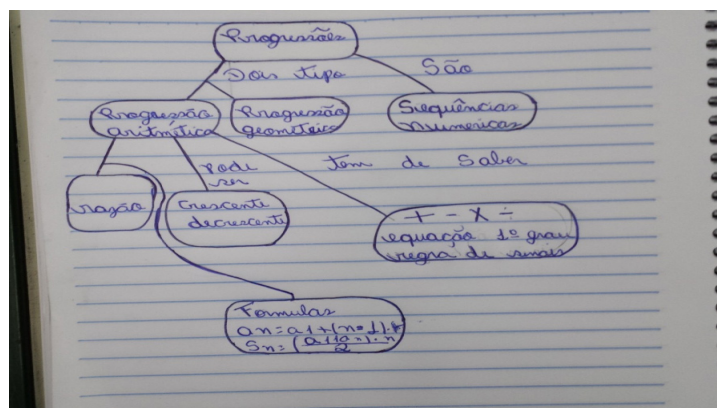 Progressões
Dois tipo
São
Progressão
aritmética
Progressão
geometrica
Sequências
numericas
pode
ser
tem de saber
razão
Crescente
decrescente
+ - x ÷
equação 1º grau
regra de sinais
Formulas
an=a1+(n-1).r
Sn=(a1+an).n
2